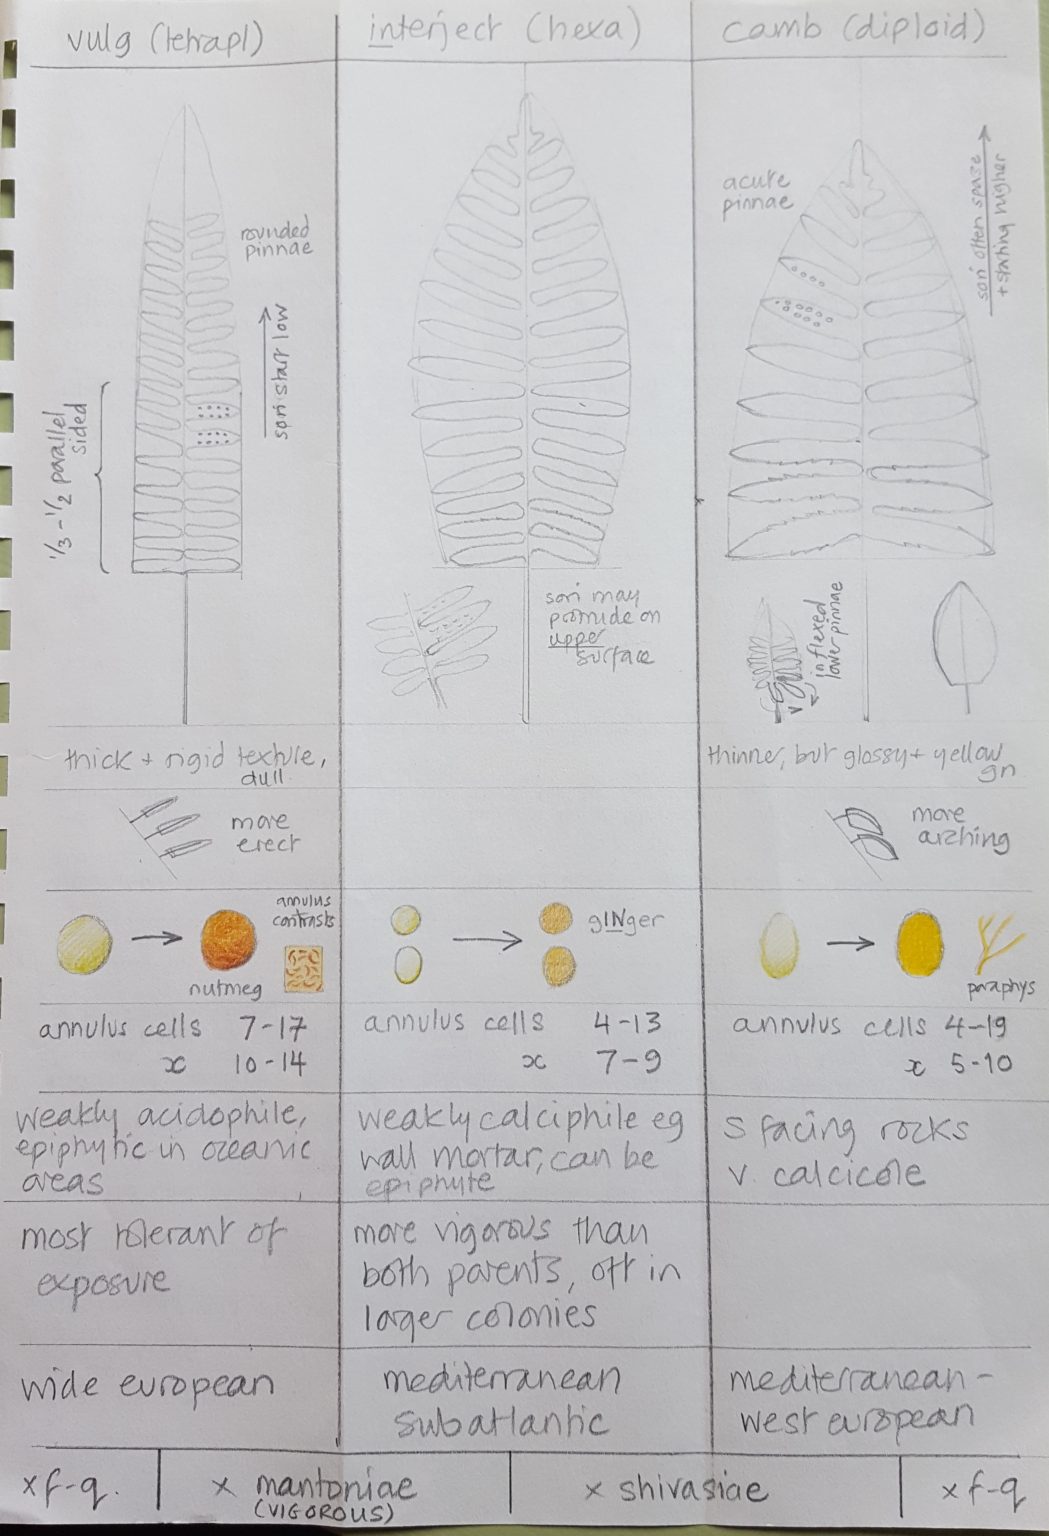 vulg (tetrapl)
interject (hexa)
camb (diploid)
rounded
pinnae
sori start low
1/3 - 1/2 parallel
sided
acute
pinnae
sori often spase
+ starting higher
sori may
protrude on
upper
surface
inflexed
lower pinnae
thick + rigid texture,
dull.
thinner, but glossy + yellow
gn
more
erect
more
arching
annulus
contrasts
nutmeg
gINger
paraphys
annulus cells 7-17
x 10-14
annulus cells 4-13
x 7-9
annulus cells 4-19
x 5-10
weakly acidophile,
epiphytic in oceanic
areas
weakly calciphile eg
wall mortar, can be
epiphyte
S facing rocks
v. calcicole
most tolerant of
exposure
more vigorous than
both parents, oft in
larger colonies
wide european
mediterranean
subatlantic
mediterranean -
west european
x f-q.
x mantoniae
(VIGOROUS)
x shivasiae
x f-q